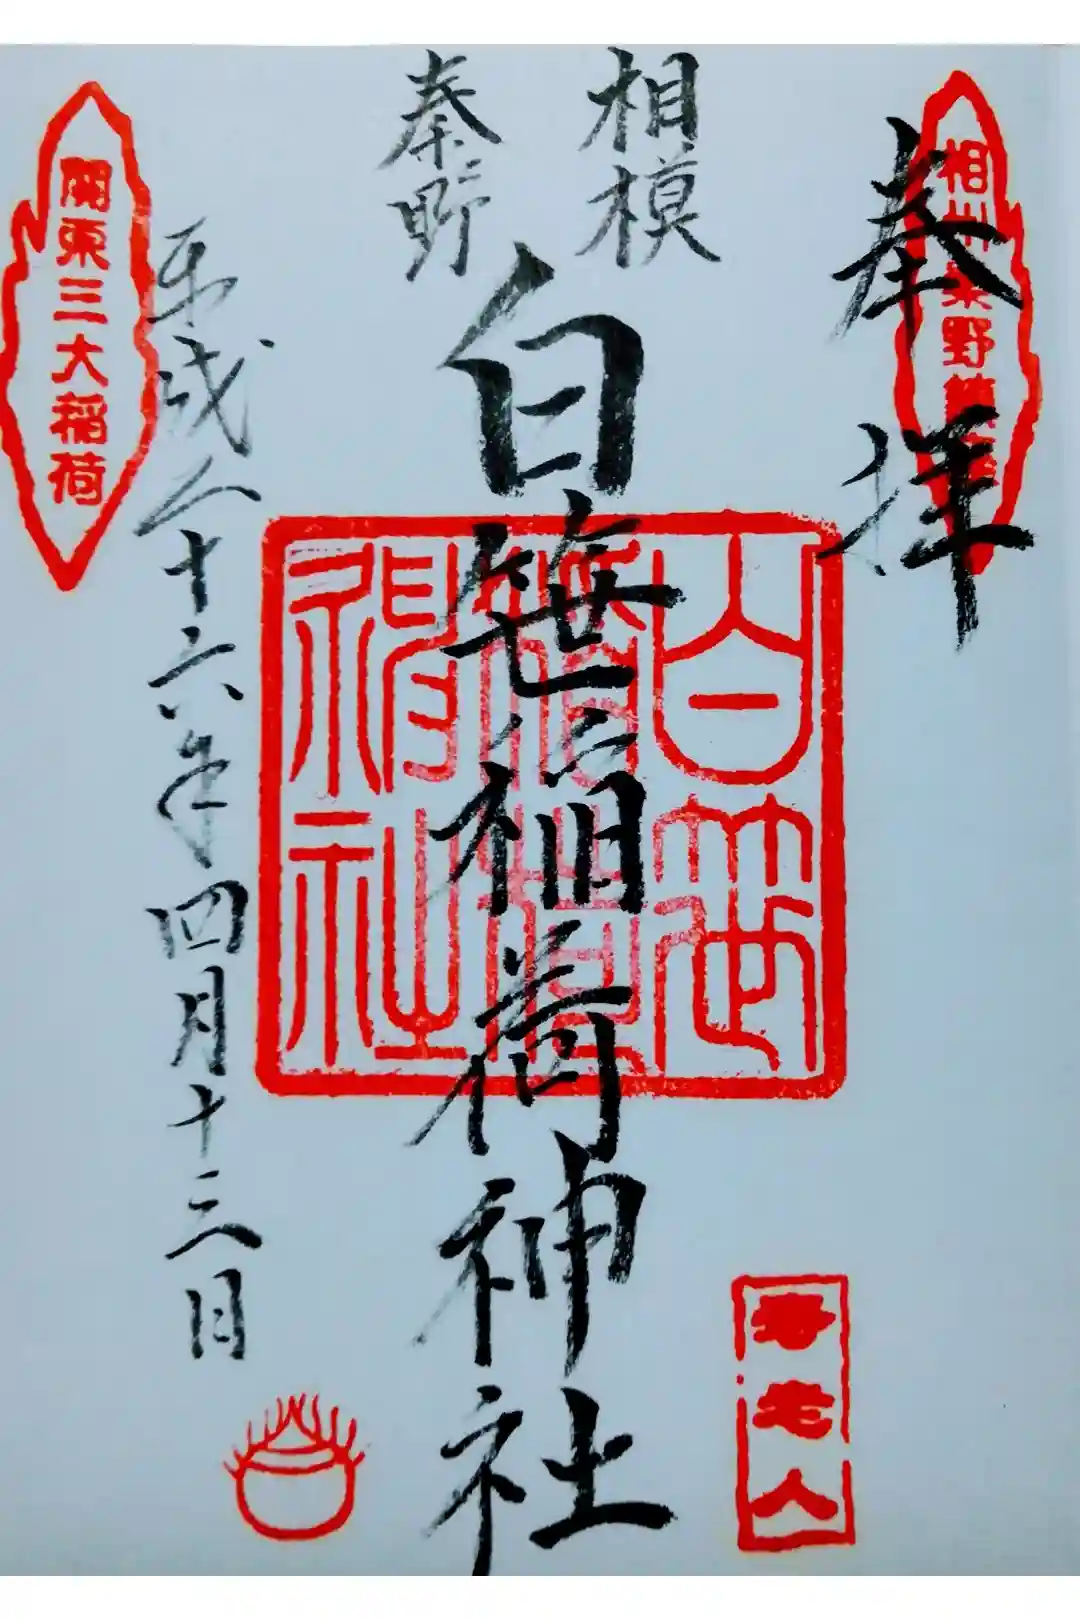 奉拝
相模
秦野
白笹稲荷神社
平成二十六年四月十三日
關東三大稲荷
白笹稲荷神社
寿老人